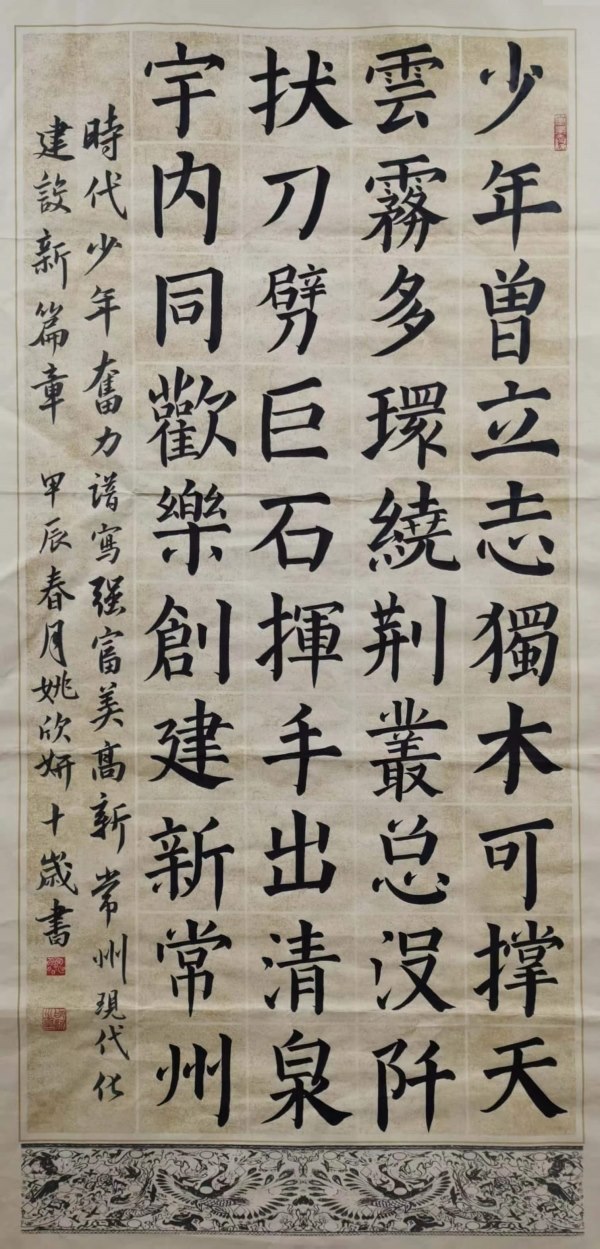 少年曾立志獨木可撐天
雲霧多環繞荆叢总没阡
扙刀劈巨石揮手出清泉
宇内同歡樂創建新常州
時代少年奮力譜寫强富美高新常州現代化
建設新篇章 甲辰春月姚欣妍十歲書